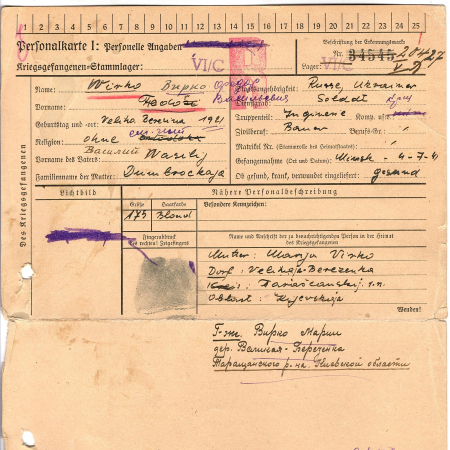 1 2 3 4 5 6 7 8 9 10 11 12 13 14 15 16 17 18 19 20 21 22 23 24 25
Personalkarte I: Personelle Angaben
Beschriftung der Erkennungsmarke
Kriegsgefangenen-Stammlager: VI/C
Nr. 34545 20427
Lager: VI/C
Des Kriegsgefangenen
Name: Wirko Вирко Федор
Staatsangehörigkeit: Russe, Ukrainer
Vorname: Feodor Васильевич
Dienstgrad: Soldat
Geburtstag und -ort Velika 1921
Truppenteil: Komp. usw.:
Religion: ohne
Zivilberuf: Bauer Berufs-Gr.:
Василий
Matrikel Nr. (Stammrolle des Heimatstaates):
Vorname des Vaters: Wasily
Gefangennahme (Ort und Datum): Minsk - 4-7-41
Familienname der Mutter: Dumbrockaja
Ob gesund, krank, verwundet eingeliefert: gesund
Lichtbild
Nähere Personalbeschreibung
Größe Haarfarbe Besondere Kennzeichen:
175 Blond
Fingerabdruck
des rechten! Zeigefingers
Name und Anschrift der zu benachrichtigenden Person in der Heimat
des Kriegsgefangenen
Mutter: Marja Virko
Dorf: Velikaja-Berezenka
Taraščanskij r.n.
Oblast: Kijevskaja
Wenden!
Г-ж. Вирко Марии
дер. Великая-Березенка
Таращанского р-на. Киевской области